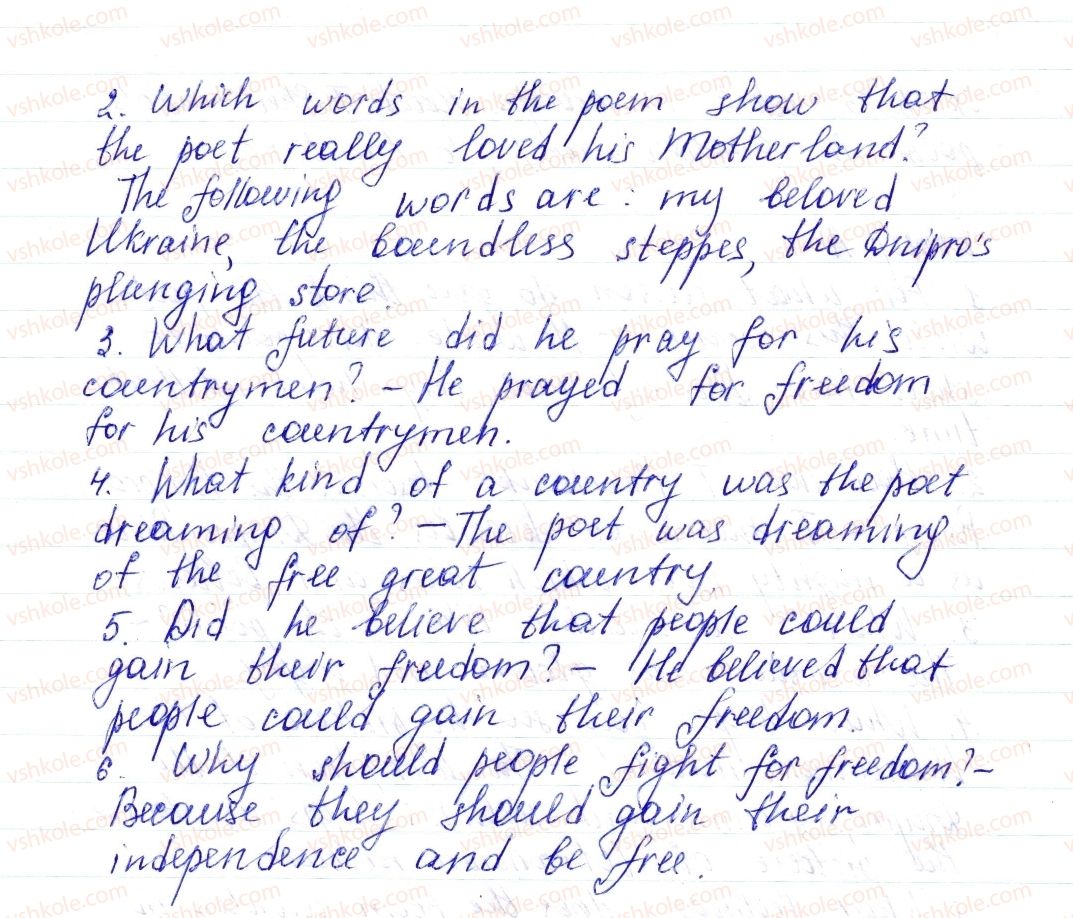 2. Which words in the poem show that
the poet really loved his Motherland?
The following words are: my beloved
Ukraine, the boundless steppes, the Dnipro's
plunging store.
3. What future did he pray for his
countrymen? - He prayed for freedom
for his countrymen.
4. What kind of a country was the poet
dreaming of? - The poet was dreaming
of the free great country.
5. Did he believe that people could
gain their freedom? - He believed that
people could gain their freedom.
6. Why should people fight for freedom? -
Because they should gain their
independence and be free.